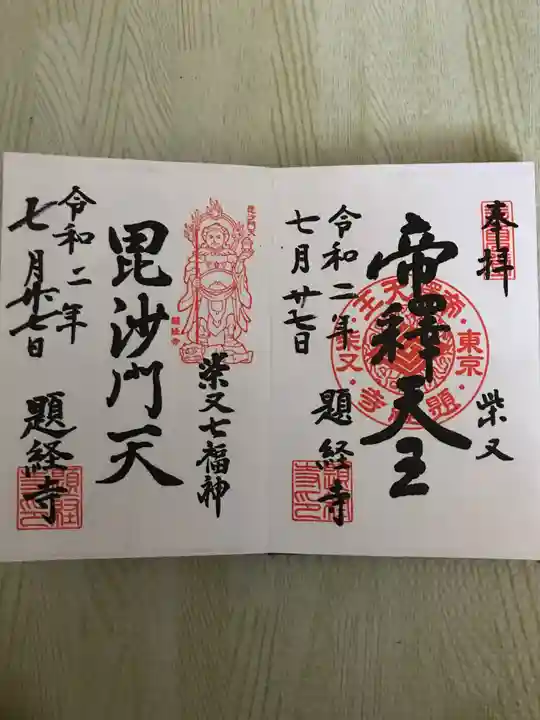 奉拝
柴又
帝釋天王
東京
柴又
題経寺
令和二年
七月廿七日
題経寺
柴又七福神
毘沙門天
令和二年
七月廿七日
題経寺